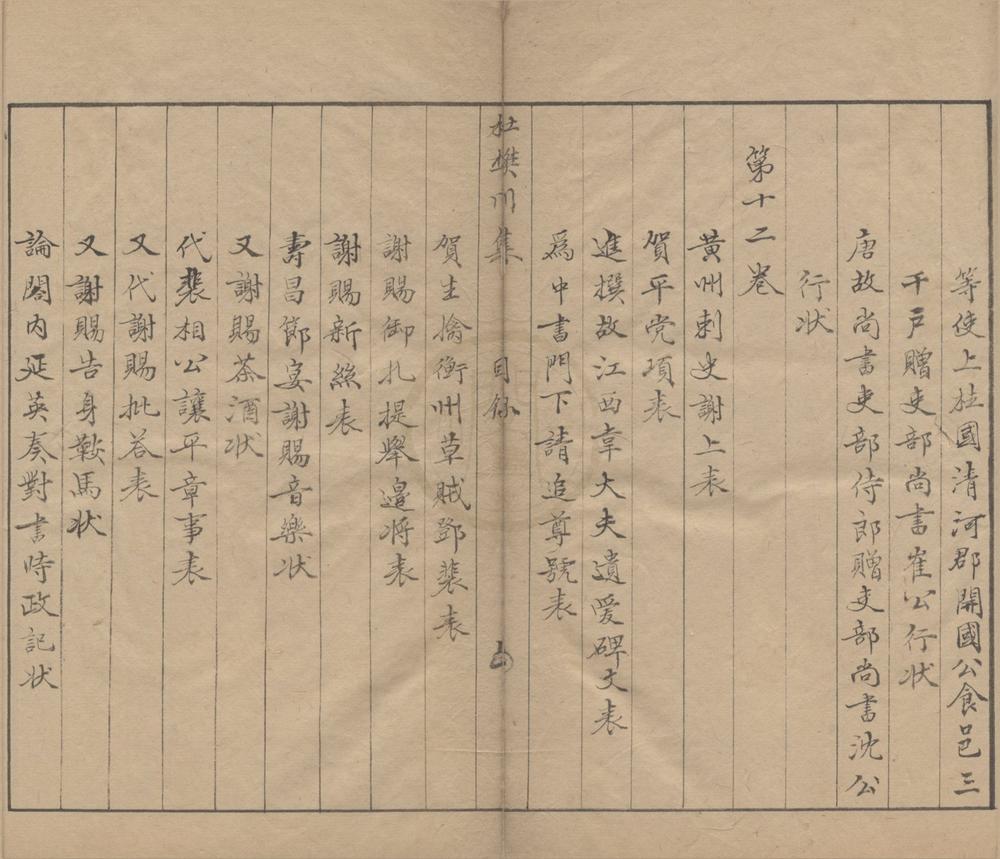 等使上柱國清河郡開國公食邑三
千戸贈吏部尚書崔公行状
唐故尚書吏部侍郎贈吏部尚書沈公
行状
第十二卷
黃州刺史謝上表
賀平党項表
進撰故江西韋大夫遺愛碑文表
爲中書門下請追尊號表
杜樊川集 目錄
賀生擒衡州草賊鄧裴表
謝賜御札提舉邉将表
謝賜新絲表
壽昌節宴謝賜音樂状
又謝賜茶酒状
代裴相公讓平章事表
又代謝賜批荅表
又謝賜告身鞍馬状
論閣内延英奏對書時政記状